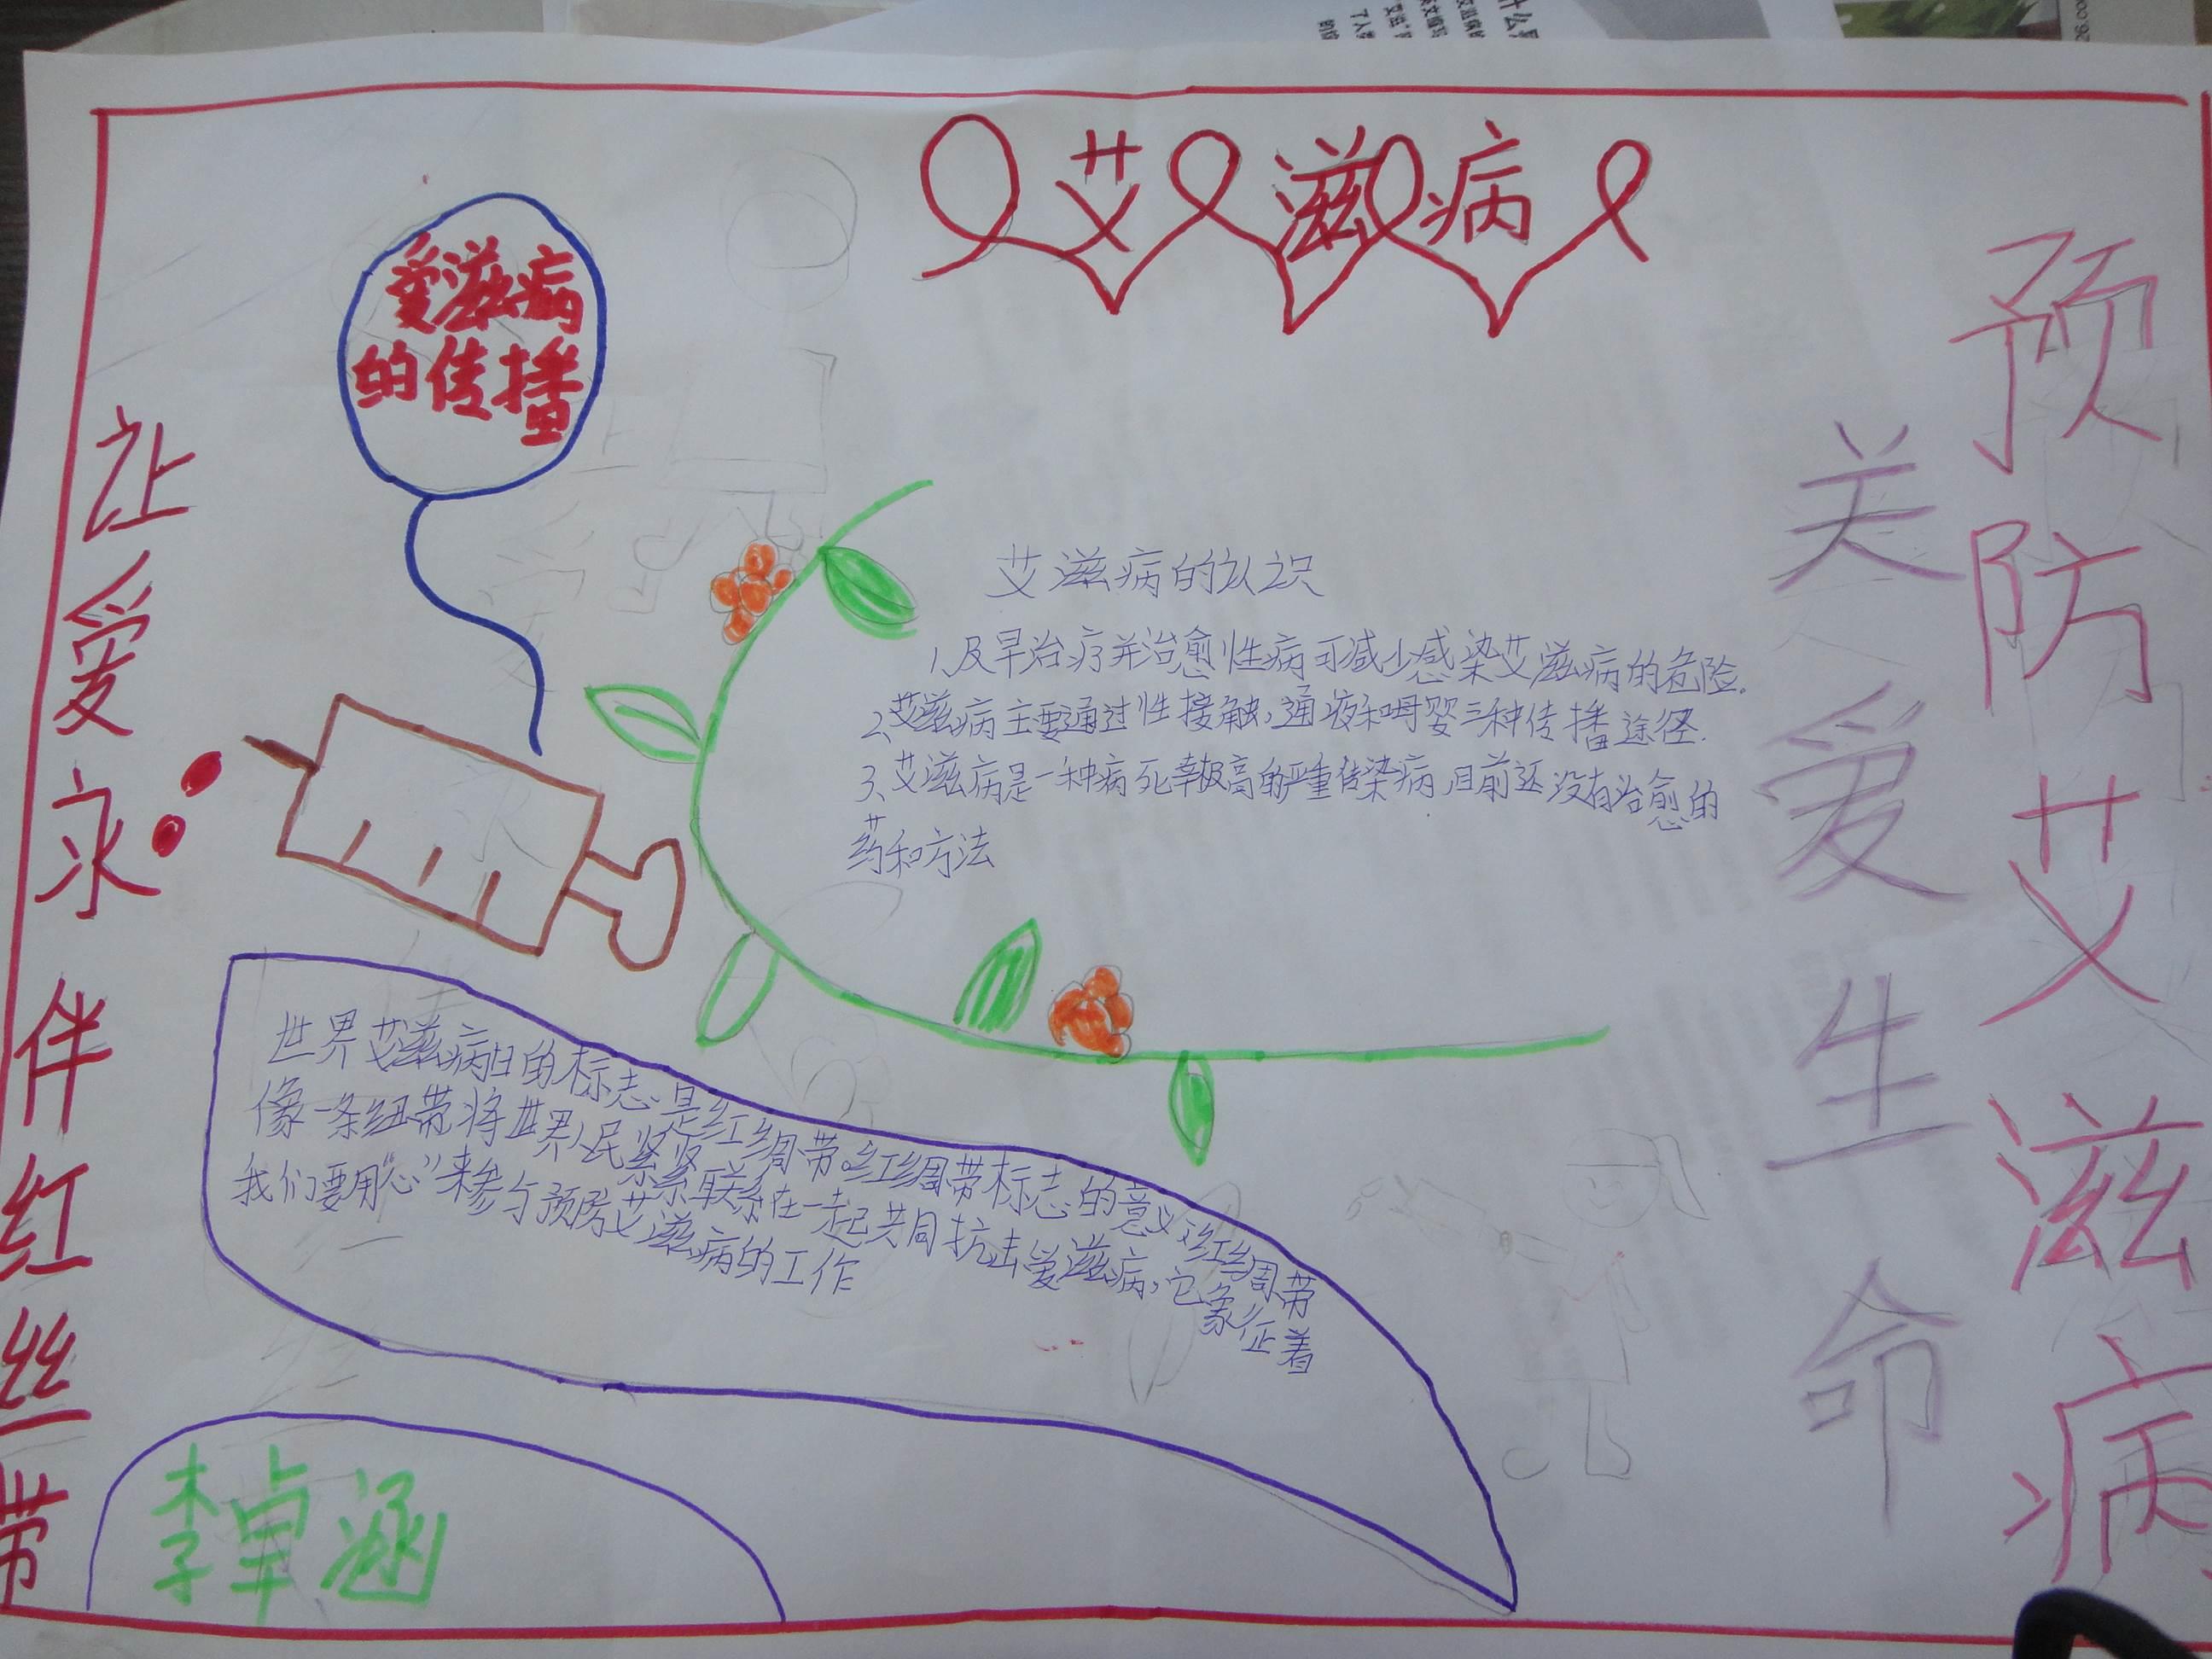 艾滋病
爱滋病
的传播
让爱永伴红丝带
预防艾滋病
关爱生命
艾滋病的认识
1、及早治疗并治愈性病可减少感染艾滋病的危险.
2、艾滋病主要通过性接触,通液和母婴三种传播途径.
3、艾滋病是一种病死率极高的严重传染病,目前还没有治愈的
药和方法
世界艾滋病日的标志是红绸带。红绸带标志的意义:红绸带
像一条纽带将世界人民紧紧联系在一起共同抗击爱滋病,它象征着
我们要用“心”来参与预防艾滋病的工作
李卓涵